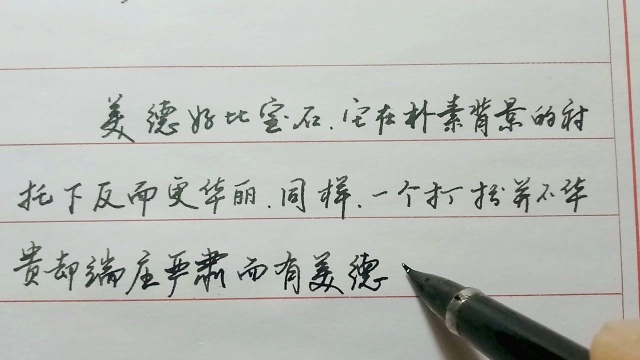 美德好比宝石.它在朴素背景的衬
托下反而更华丽.同样.一个打扮并不华
贵却端庄严肃而有美德